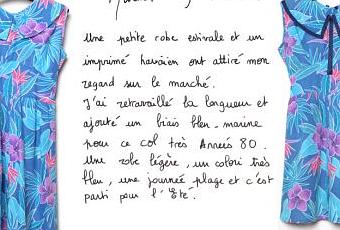 Une petite robe estivale et un
imprimé hawaïen ont attiré mon
regard sur le marché.
J'ai retravaillé la longueur et
ajouté un biais bleu-marine
pour ce col très Années 80.
Une robe légère, un colori très
bleu, une journée plage et c'est
parti pour l'Eté.